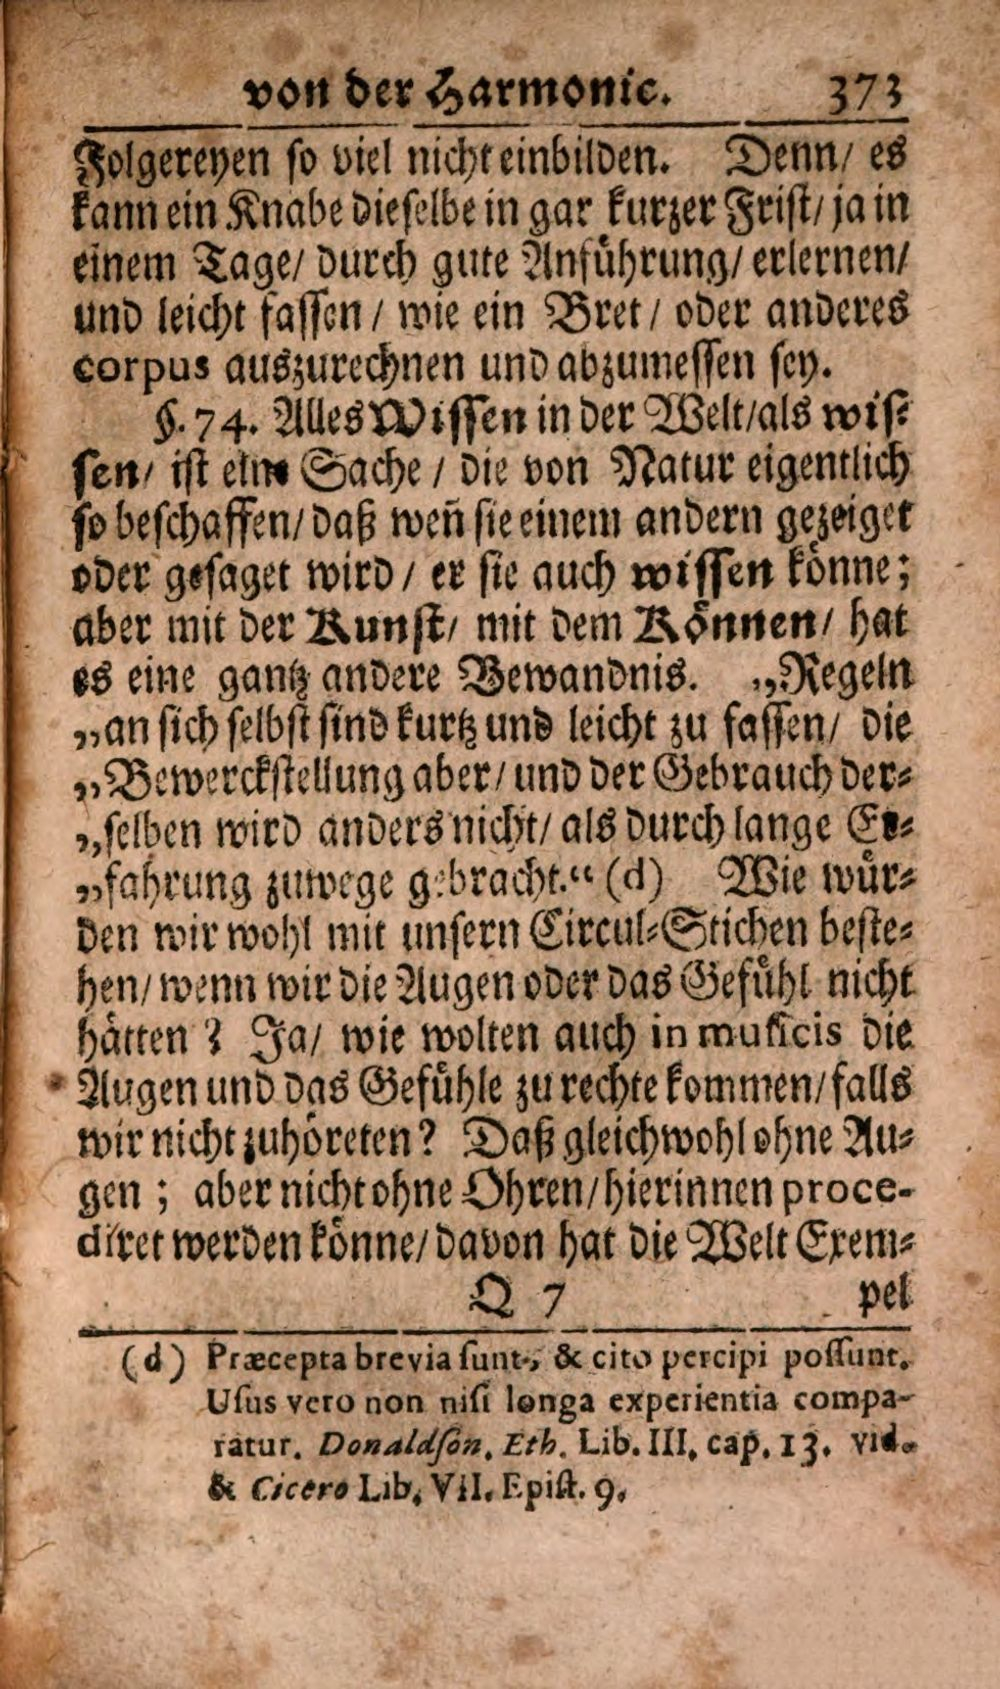 von der Harmonie. 373
Folgereyen so viel nicht einbilden. Denn/ es
kann ein Knabe dieselbe in gar kurzer Frist/ ja in
einem Tage/ durch gute Anführung/ erlernen/
und leicht fassen / wie ein Bret / oder anderes
corpus auszurechnen und abzumessen sey.
§. 74. Alles Wissen in der Welt/ als wis⸗
sen/ ist eine Sache / die von Natur eigentlich
so beschaffen/ daß weñ sie einem andern gezeiget
oder gesaget wird / er sie auch wissen könne;
aber mit der Kunst/ mit dem Können/ hat
es eine gantz andere Bewandnis. „Regeln
„an sich selbst sind kurtz und leicht zu fassen/ die
„Bewerckstellung aber/ und der Gebrauch der⸗
„selben wird anders nicht/ als durch lange Er⸗
„fahrung zuwege gebracht.“ (d) Wie wür⸗
den wir wohl mit unsern Circul⸗Stichen beste⸗
hen/ wenn wir die Augen oder das Gefühl nicht
hätten ? Ja/ wie wolten auch in musicis die
Augen und das Gefühle zu rechte kommen/ falls
wir nicht zuhöreten? Daß gleichwohl ohne Au⸗
gen ; aber nicht ohne Ohren/ hierinnen proce-
diret werden könne/ davon hat die Welt Exem⸗
Q 7 pel
(d) Præcepta brevia sunt, & cito percipi possunt.
Usus vero non nisi longa experientia compa-
ratur. Donaldson. Eth. Lib. III. cap. 13. vid.
& Cicero Lib. VII. Epist. 9.